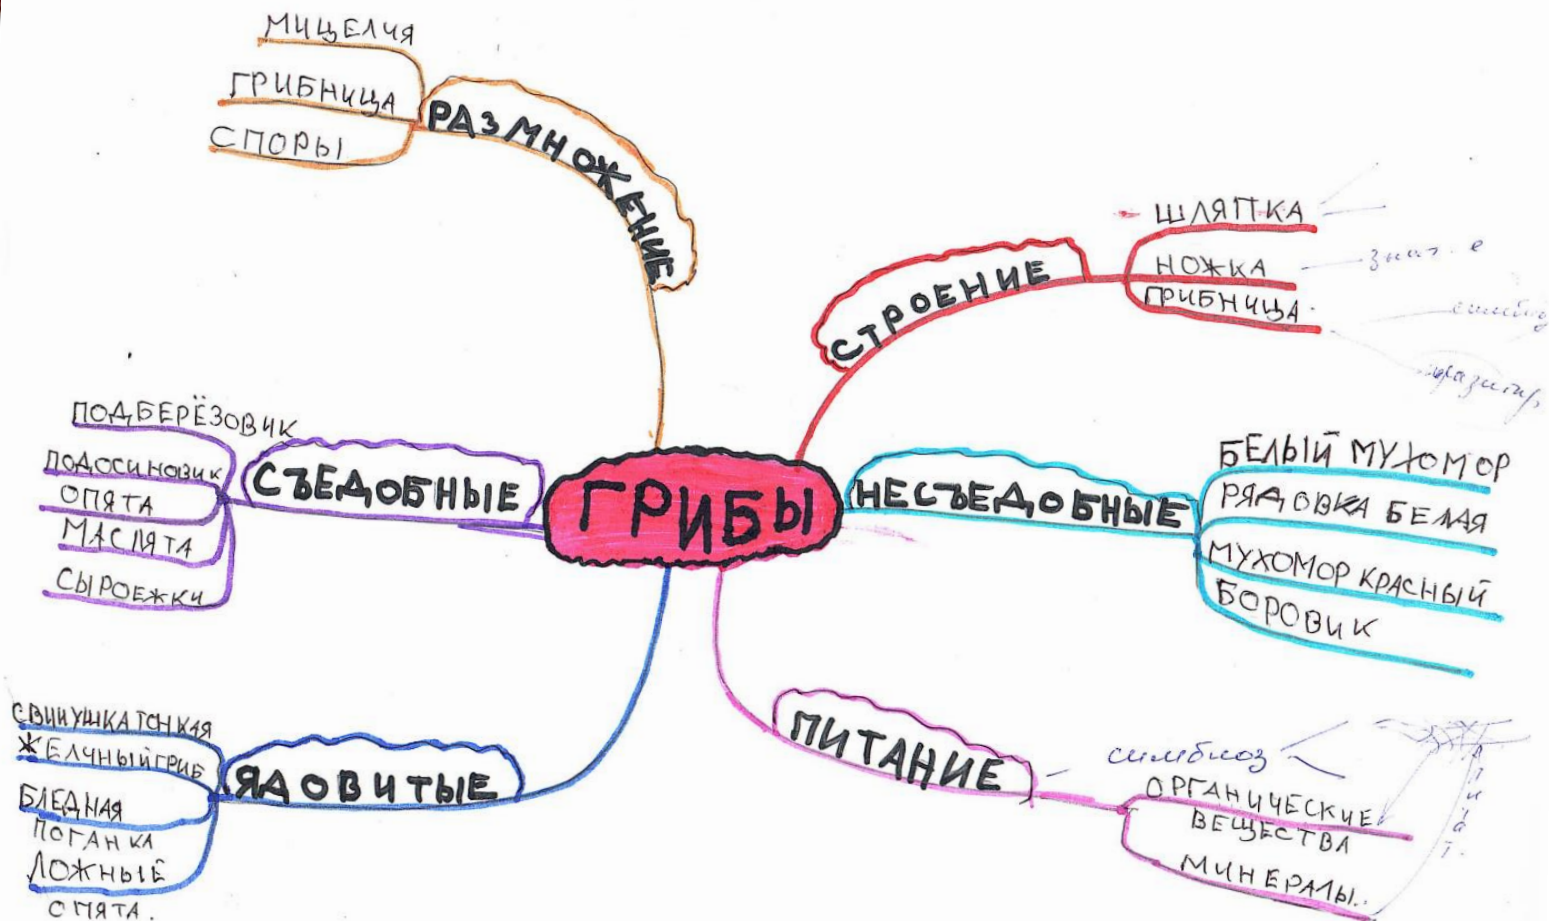 МИЦЕЛИЯ
ГРИБНИЦА
СПОРЫ
РАЗМНОЖЕНИЕ
СТРОЕНИЕ
ШЛЯПКА
НОЖКА
ГРИБНИЦА
ПОДБЕРЁЗОВИК
ПОДОСИНОВИК
ОПЯТА
МАСЛЯТА
СЫРОЕЖКИ
СЪЕДОБНЫЕ
ГРИБЫ
НЕСЪЕДОБНЫЕ
БЕЛЫЙ МУХОМОР
РЯДОВКА БЕЛАЯ
МУХОМОР КРАСНЫЙ
БОРОВИК
СВИНУШКА ТОНКАЯ
ЖЕЛЧНЫЙ ГРИБ
БЛЕДНАЯ
ПОГАНКА
ЛОЖНЫЕ
ОПЯТА.
ЯДОВИТЫЕ
ПИТАНИЕ
симбиоз
ОРГАНИЧЕСКИЕ
ВЕЩЕСТВА
МИНЕРАЛЫ.